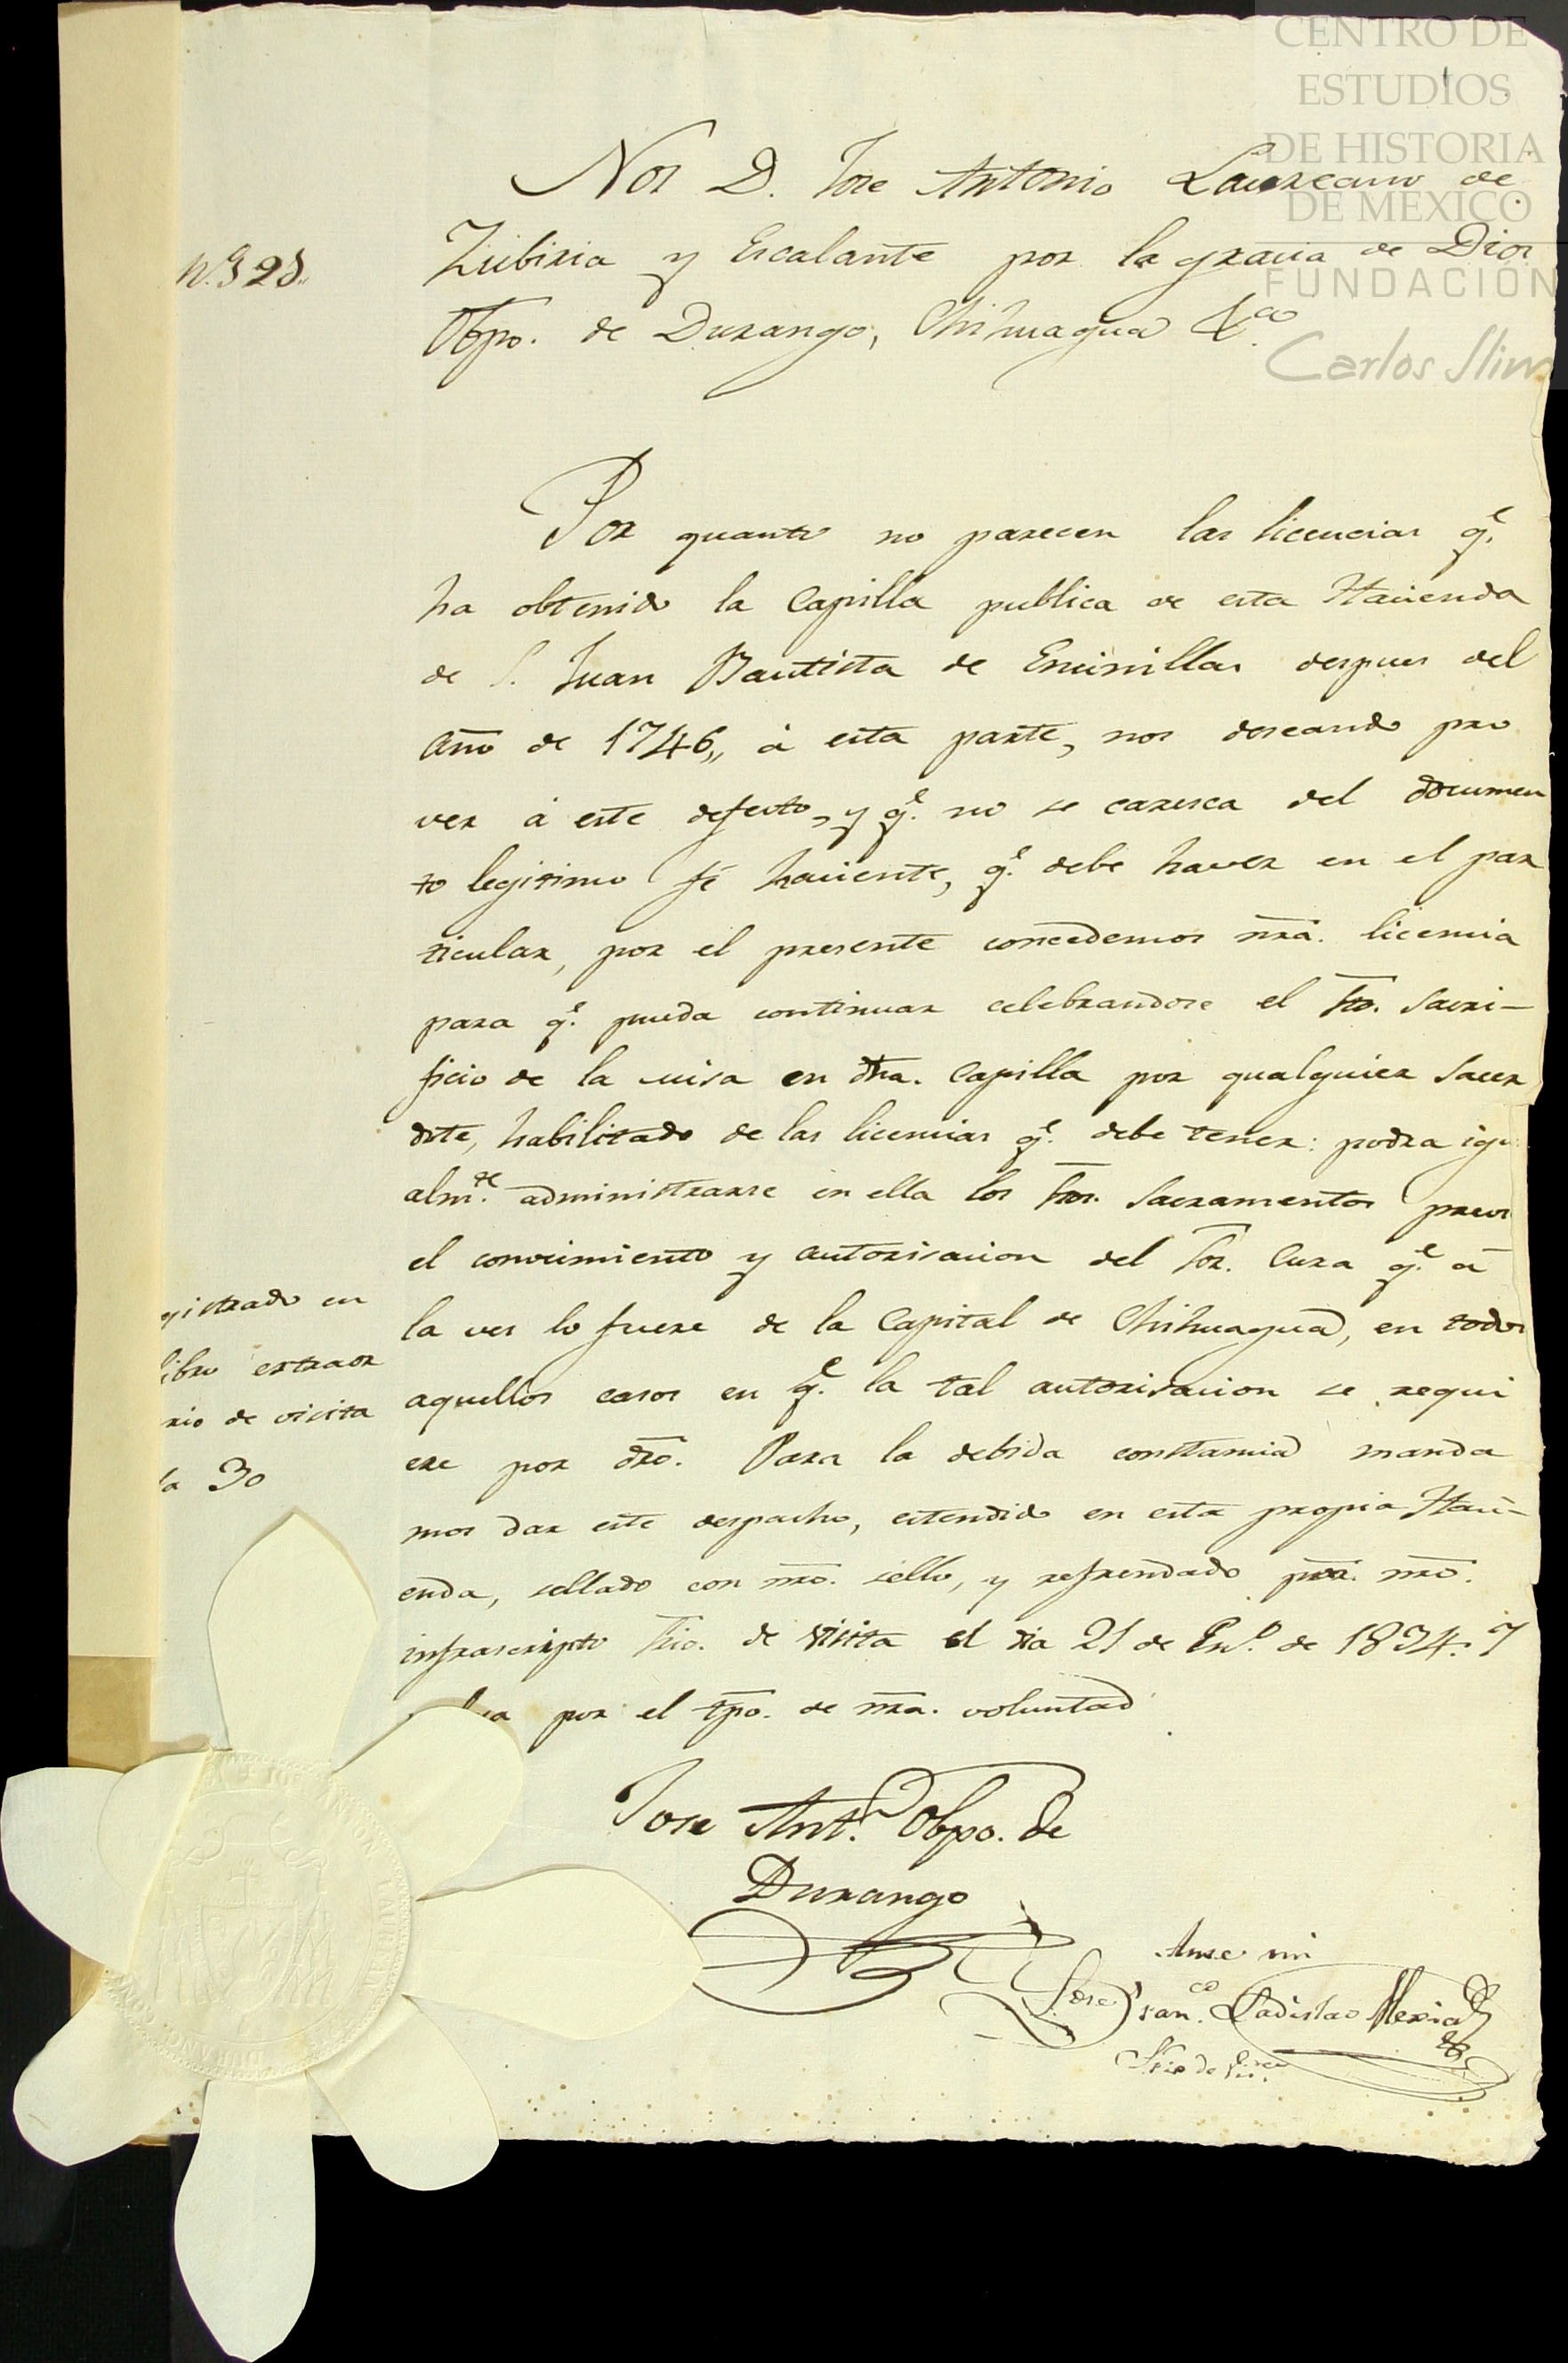 CENTRO DE
ESTUDIOS
DE HISTORIA
DE MEXICO
FUNDACIÓN
Carlos Slim
Nos D. Jose Antonio Laureano de
Zubiria y Escalante por la gracia de Dios
Obpo. de Durango, Chihuagua &ca.
Por quanto no parecen las licencias q.e
ha obtenido la Capilla publica de esta Hacienda
de S. Juan Bautista de Encinillas despues del
año de 1746,, á esta parte, nos deseando pro
veer á este defecto, y q.e no se caresca del documen
to legitimo fé haciente, q.e debe haver en el par
ticular, por el presente concedemos nra. licencia
para q.e pueda continuar celebrandose el Sto. Sacri-
ficio de la misa en dha. Capilla por qualquier Sacer
dote, habilitado de las licencias q.e debe tener: podra igu
alm.te administrarse en ella los Stos. Sacramentos previo
el conocimiento y autorisacion del Sor. Cura q.e á
la ves lo fuere de la Capital de Chihuagua, en todos
aquellos casos en q.e la tal autorisacion se requi
ere por dro. Para la debida constancia manda
mos dar este despacho, estendido en esta propia Haci-
enda, sellado con nro. sello, y refrendado por nro.
infrascripto Srio. de visita el dia 21 de En.o de 1834. Y
por el tpo. de nra. voluntad
Jose Ant.o Obpo. de
Durango
Ante mi
Jose Fran.co Ladislao Mexia
Srio de
gistrado en
libro extraor
rio de visita
30